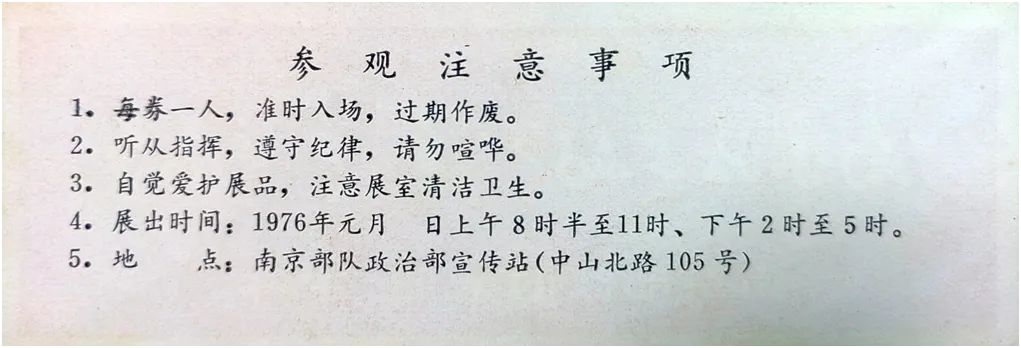 参观注意事项
1. 每券一人，准时入场，过期作废。
2. 听从指挥，遵守纪律，请勿喧哗。
3. 自觉爱护展品，注意展室清洁卫生。
4. 展出时间：1976年元月　日上午8时半至11时、下午2时至5时。
5. 地　　点：南京部队政治部宣传站(中山北路105号)